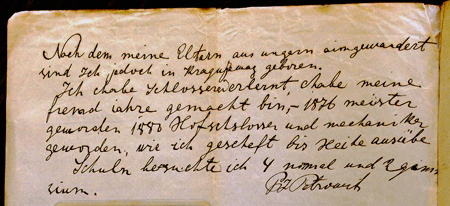 Nach dem meine Eltern aus ungern aimgewandert
sind Ich jedoch in Kragujewaz geboren.
Ich chabe Schlosserei erlernt, chabe meine
fremd iahre gemacht bin,- 1876 meister
geworden 1880 Hofschlosser und mechaniker
geworden, wie ich gescheft bis Heite ausübe
Schuln besuchte ich 4 nomal und 2 gim
sium.